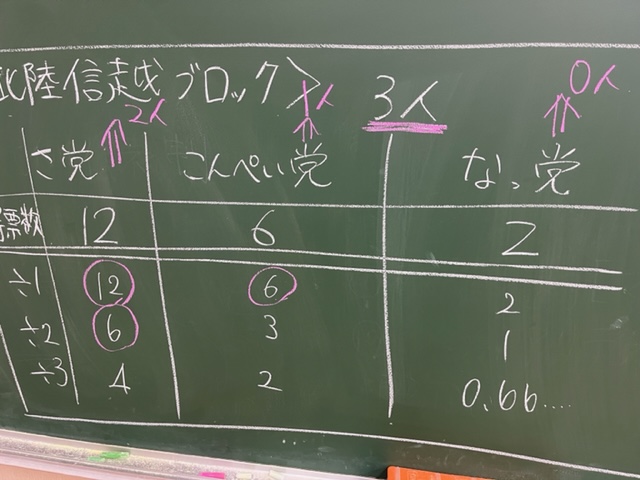 北陸信越ブロック> 3人
2人 1人 0人
さ党 こんぺい党 なっ党
票数 12 6 2
÷1 12 6 2
÷2 6 3 1
÷3 4 2 0.66....